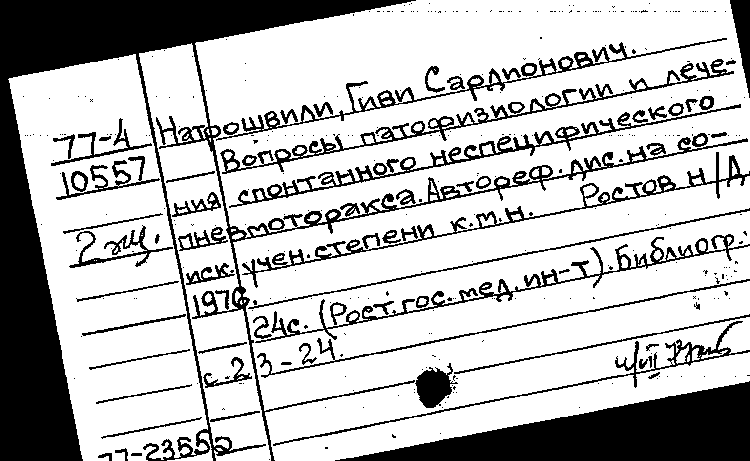 Натрошвили, Гиви Сардионович.
77-4
10557
Вопросы патофизиологии и лече-
ния спонтанного неспецифического
2 экз.
пневмоторакса. Автореф. дис. на со-
иск. учен. степени к.м.н. Ростов н/Д,
1976.
24с. (Рост. гос. мед. ин-т). Библиогр.:
с. 23-24.
77-23552